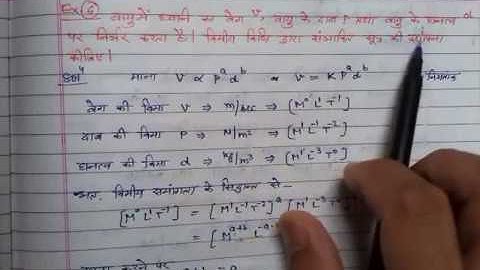 Ex(6) वायु में ध्वनि का वेग V, वायु के दाब P तथा वायु के घनत्व d
पर निर्भर करता है। विमीय विधि द्वारा संभावित सूत्र की स्थापना
कीजिए।
Solⁿ माना V ∝ Pᵃdᵇ or V = K Pᵃdᵇ
वेग की विमा V ⇒ m/sec ⇒ [M⁰L¹T⁻¹]
दाब की विमा P ⇒ N/m² ⇒ [M¹L⁻¹T⁻²]
घनत्व की विमा d ⇒ kg/m³ ⇒ [M¹L⁻³T⁰]
अतः विमीय समांगता के सिद्धान्त से-
[M⁰L¹T⁻¹] = [M¹L⁻¹T⁻²]ᵃ [M¹L⁻³T⁰
= [Mᵃ⁺ᵇ L⁻ᵃ⁻
करने पर